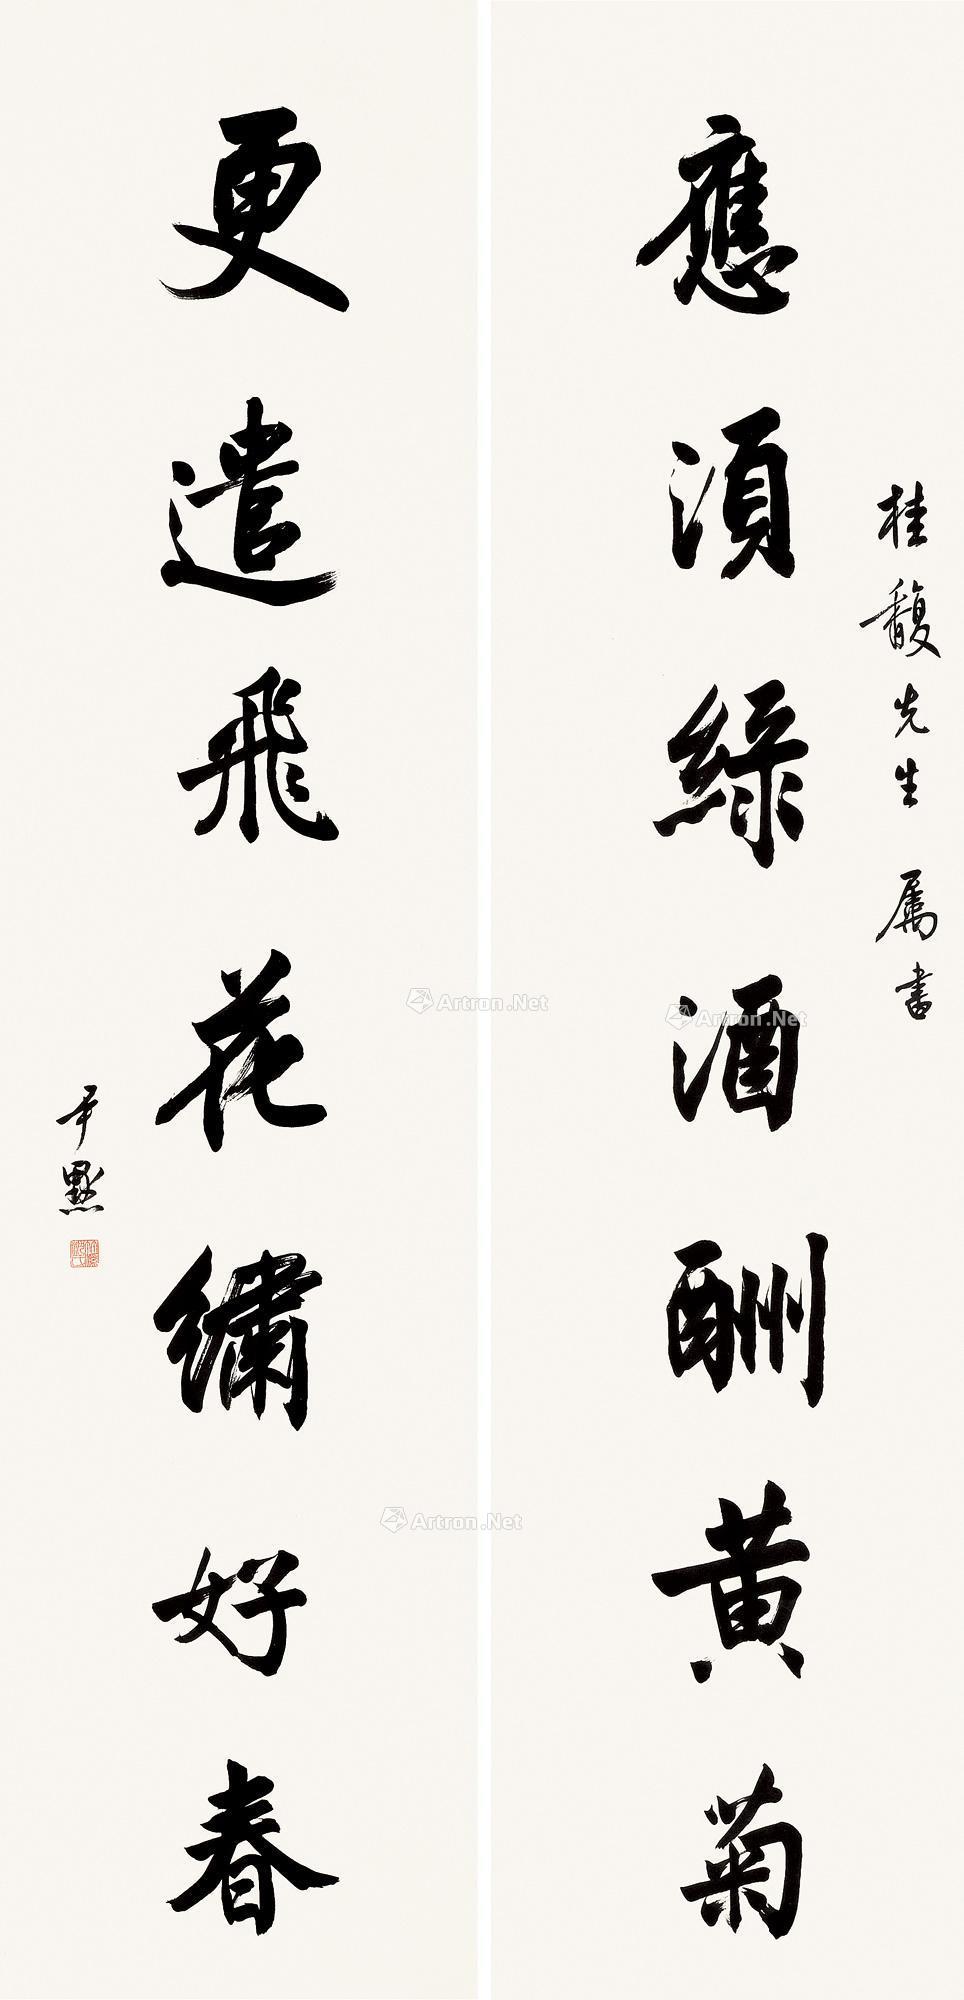 桂馥先生属書
應須綠酒酬黃菊
更遣飛花繡好春
尹默
Artron.Net
Artron.Net
Artron.Net